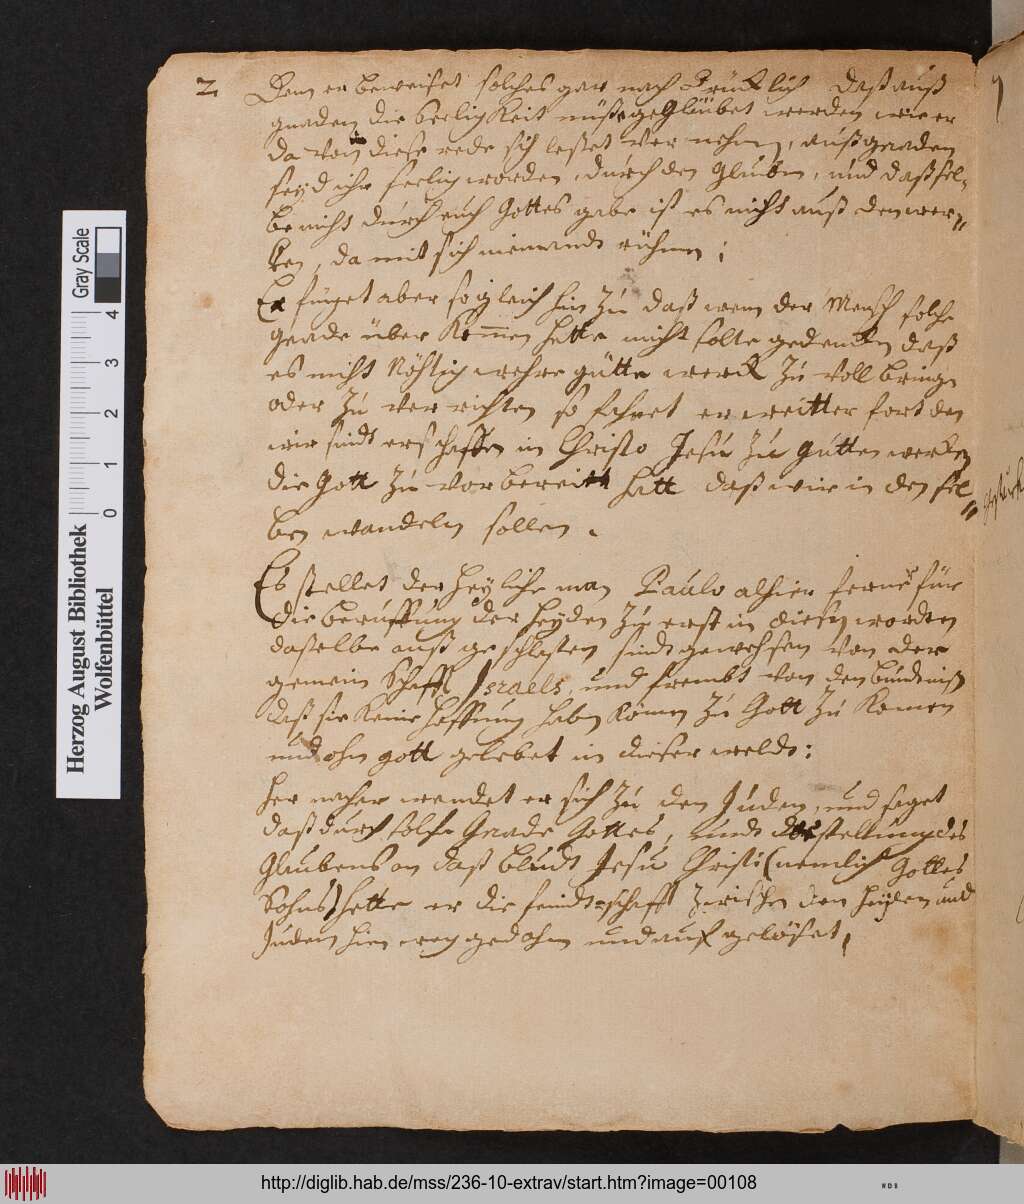 2
Den er beweiset solches gar nach Trücklich daß auß
gnaden die Seelig Keit müße gegläubet werden wie er
da von in diese rede sich leßet ver nehmen, auß gnaden
seyd ihr seelig worden, durch den glauben, und daßsel-
be nicht durch euch Gottes gabe ist es nicht auß den wer-
ken, da mit sich niemandt rühme;
Er füeget aber so gleich hin zu daß wenn der Mensch solche
gnade über Kommen hette nicht solte gedencken daß
es nicht Nöhtig wehre gutte werck zu voll bringen
oder zu ver richten so fahret er weitter fort den
wir sindt erschaffen in Christo Jesu zu gutten wercken
die Gott zu vor bereitt hatt daß wir in den sel-
ben wandeln sollen.
Es stellet der heylige man Paulo alhier ferner für
die beruffung der heyden zu erst in diesen worden
daselbe auß geschloßen sindt gewehsen von der
gemein Schafft Israels, und frembt von den bündniß
daß sie keine hoffnung haben können zu Gott zu komen
und ohn gott gelebet in dieser weldt:
her nacher wendet er sich zu den Juden, und saget
daß durch solche Gnade Gottes, undt darstellung des
Glaubens an daß bludt Jesu Christi (nemlich Gottes
Sohns) hette er die feindtschafft zwischen den heyden und
Juden hien weg gedahn und auf gelöset,
Herzog August Bibliothek
Wolfenbüttel
Gray Scale
0 1 2 3 4
http://diglib.hab.de/mss/236-10-extrav/start.htm?image=00108